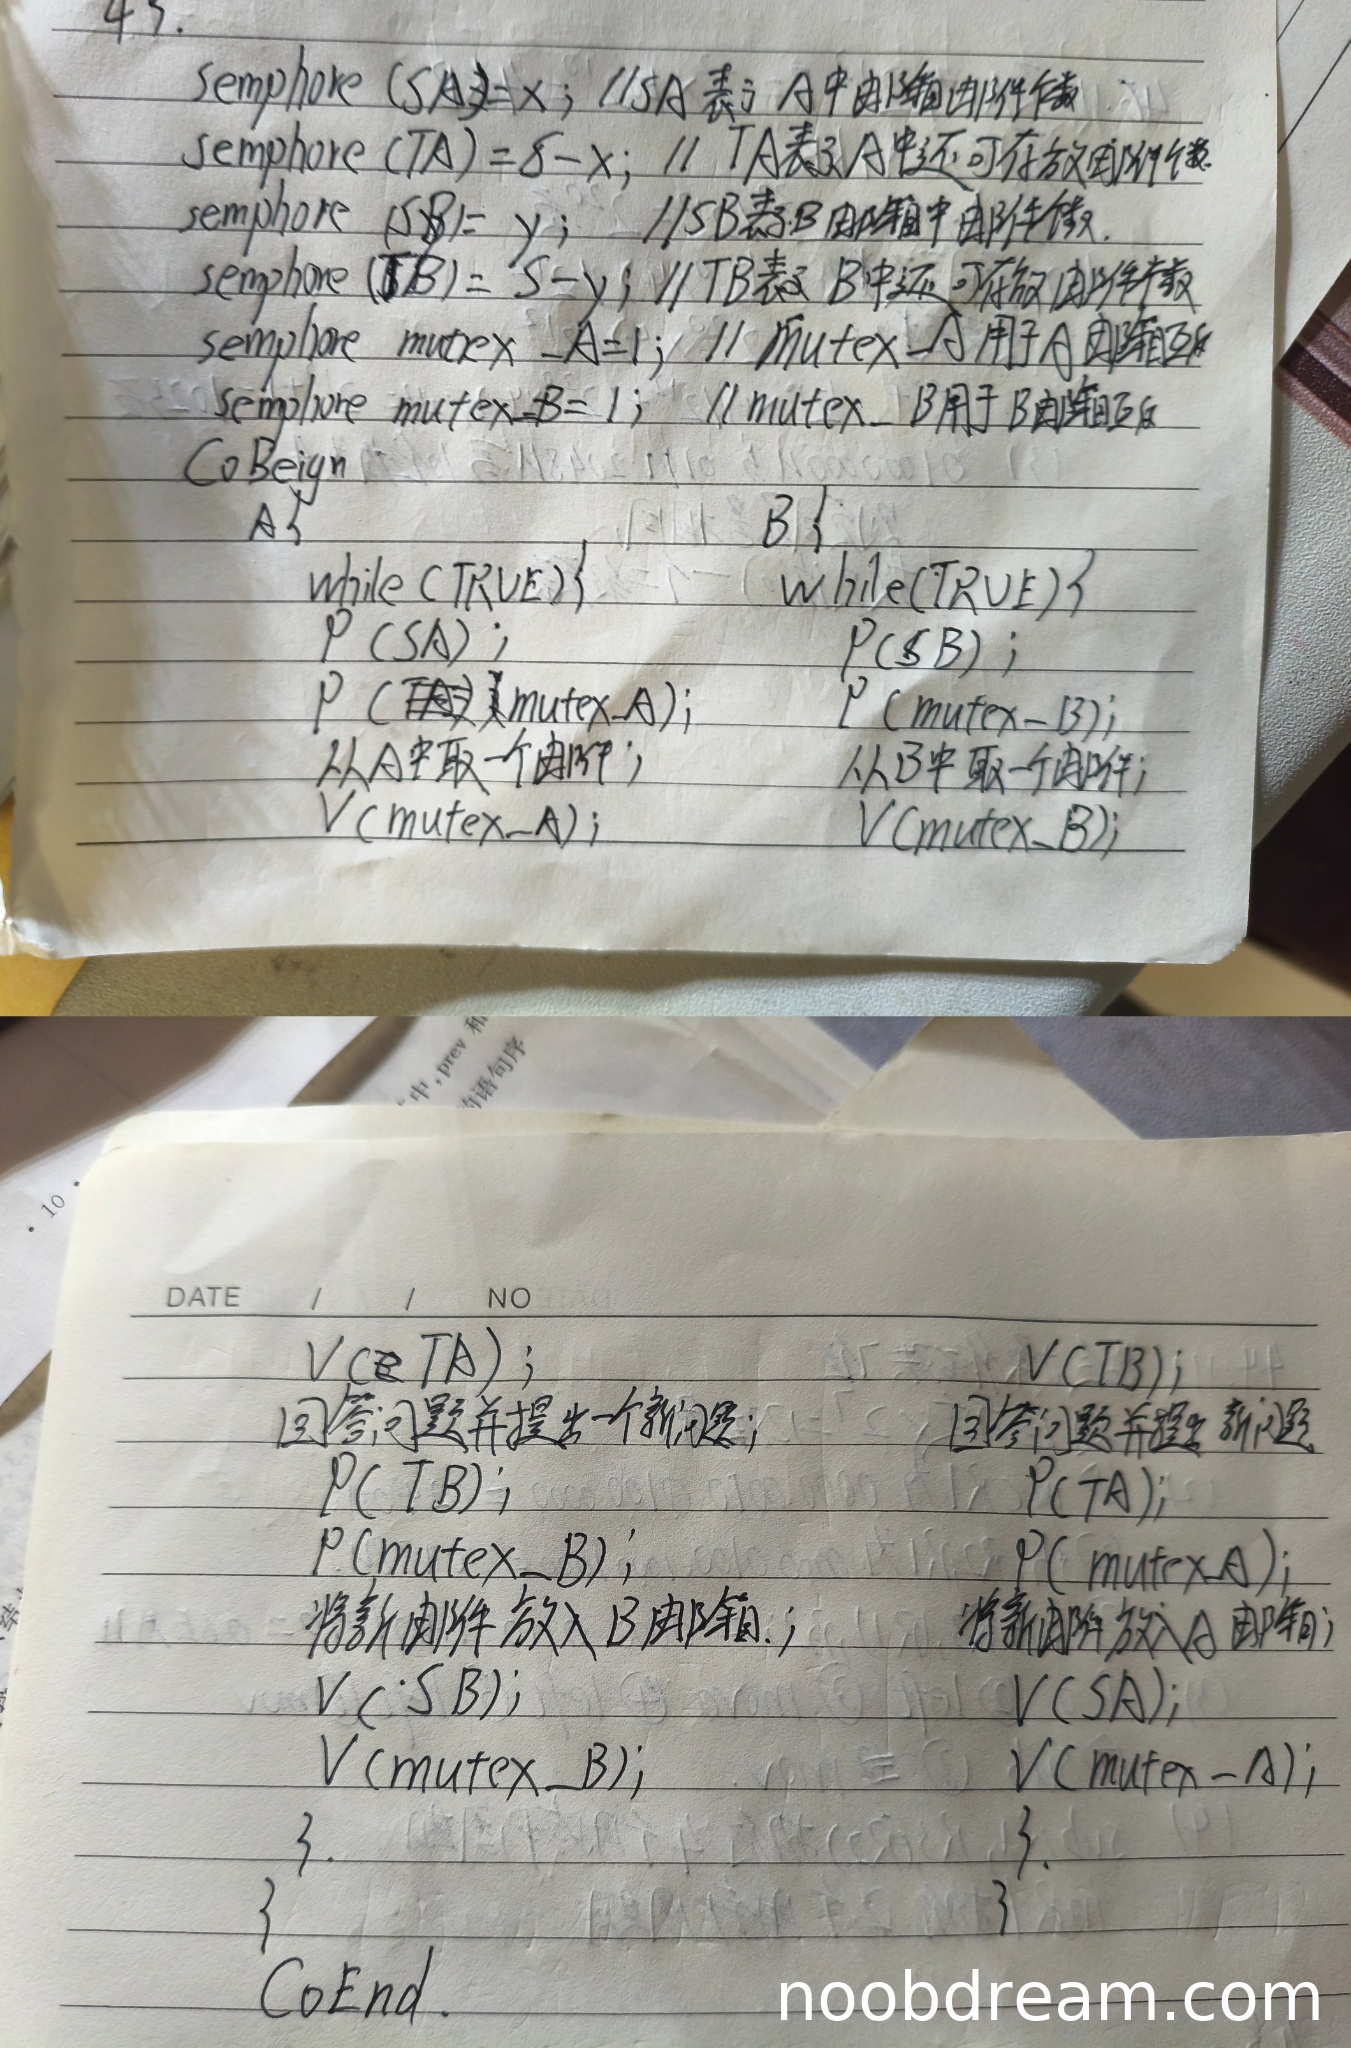 45.
semphore (SA)=x; //SA表示A中邮箱邮件个数
semphore (TA)=8-x; // TA表示A中还可存放邮件个数.
semphore (SB)= y; //SB表示B邮箱中邮件个数.
semphore (TB)= 5-y; //TB表示B中还可存放邮件个数
semphore mutex_A=1; // mutex_A用于A邮箱互斥
semphore mutex_B=1; //mutex_B用于B邮箱互斥
CoBeign
A{ B{
while(TRUE){ while(TRUE){
P(SA); P(SB);
P(mutex_A); P(mutex_B);
从A中取一个邮件; 从B中取一个邮件;
V(mutex_A); V(mutex_B);
中,prev 和
的语句序
· 10 ·
DATE / / NO
V(TA); V(TB);
回答问题并提出一个新问题; 回答问题并提出新问题
P(TB); P(TA);
P(mutex_B); P(mutex_A);
将新邮件放入B邮箱.; 将新邮件放入A邮箱;
V(SB); V(SA);
V(mutex_B); V(mutex_A);
}. }.
} }
CoEnd.
noobdream.com